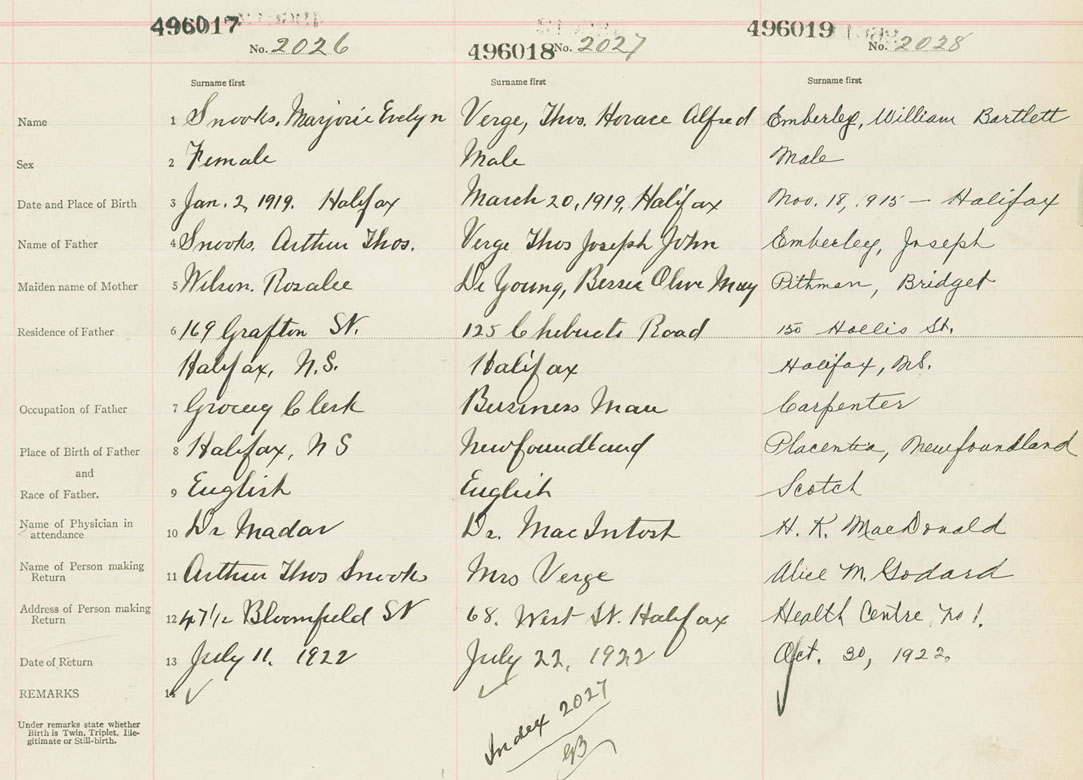 496017 No. 2026 496018 No. 2027 496019 No. 2028
Surname first Surname first Surname first
Name 1 Snooks, Marjorie Evelyn Verge, Thos. Horace Alfred Emberley, William Bartlett
Sex 2 Female Male Male
Date and Place of Birth 3 Jan. 2, 1919. Halifax March 20, 1919, Halifax Nov. 18, 1915 — Halifax
Name of Father 4 Snooks, Arthur Thos. Verge Thos Joseph John Emberley, Joseph
Maiden name of Mother 5 Wilson. Rosalee De Young, Bessie Olive May Pithman, Bridget
Residence of Father 6 169 Grafton St. 125 Chebucto Road 150 Hollis St.
Halifax, N.S. Halifax Halifax, N.S.
Occupation of Father 7 Grocery Clerk Business Man Carpenter
Place of Birth of Father 8 Halifax, N S Newfoundland Placentia, Newfoundland
and
Race of Father. 9 English English Scotch
Name of Physician in
attendance 10 Dr Madar Dr. MacIntosh H. K. MacDonald
Name of Person making
Return 11 Arthur Thos Snooks Mrs Verge Alice M. Godard
Address of Person making
Return 12 47½ Bloomfield St 68. West St. Halifax Health Centre, No 1.
Date of Return 13 July 11. 1922 July 22, 1922 Oct. 30, 1922.
REMARKS 14
Under remarks state whether
Birth is Twin, Triplet, Ille-
gitimate or Still-birth.
Index 2027